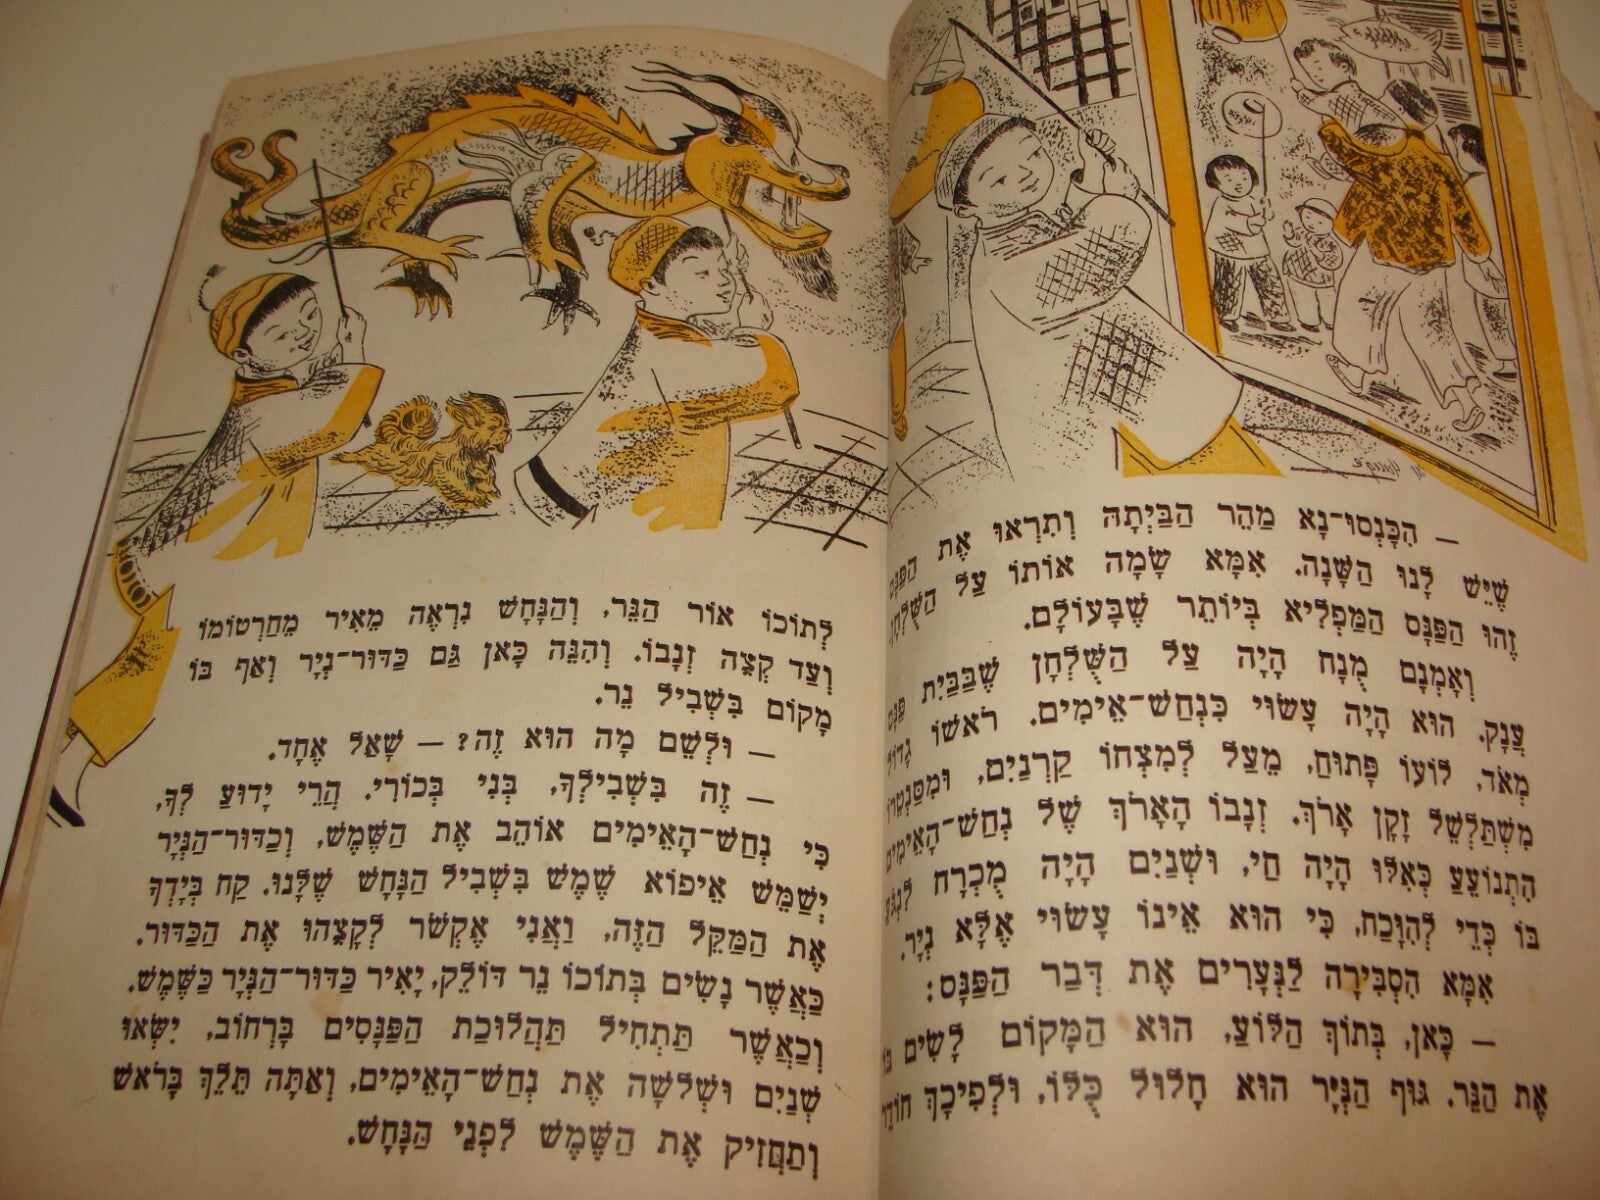 – הִכָּנְסוּ־נָא מַהֵר הַבַּיְתָה וְתִרְאוּ אֶת
שֶׁיֵּשׁ לָנוּ הַשָּׁנָה. אִמָּא שָׂמָה אוֹתוֹ עַל הַשֻּׁלְחָן,
זֶהוּ הַפַּנָּס הַמַּפְלִיא בְּיוֹתֵר שֶׁבָּעוֹלָם.
וְאָמְנָם מֻנָּח הָיָה עַל הַשֻּׁלְחָן שֶׁבַּבַּיִת פַּנָּס
עֲנָק. הוּא הָיָה עָשׂוּי כִּנְחַשׁ־אֵימִים. רֹאשׁוֹ גָּדוֹל
מְאֹד, לוֹעוֹ פָּתוּחַ, מֵעַל לְמִצְחוֹ קַרְנַיִם, וּמִסַּנְטֵרוֹ
מִשְׁתַּלְשֵׁל זָקָן אָרֹךְ. זְנָבוֹ הָאָרֹךְ שֶׁל נְחַשׁ־הָאֵימִים
הִתְנוֹעֵעַ כְּאִלּוּ הָיָה חַי, וּשְׁנַיִם הָיָה מֻכְרָח
בּוֹ כְּדֵי לְהִוָּכַח, כִּי הוּא אֵינוֹ עָשׂוּי אֶלָּא נְיָר.
אִמָּא הִסְבִּירָה לַנְּעָרִים אֶת דְּבַר הַפַּנָּס:
– כָּאן, בְּתוֹךְ הַלּוֹעַ, הוּא הַמָּקוֹם לָשִׂים
אֶת הַנֵּר. גּוּף הַנְּיָר הוּא חָלוּל כֻּלּוֹ, וּלְפִיכָךְ
לְתוֹכוֹ אוֹר הַנֵּר, וְהַנָּחָשׁ נִרְאֶה מֵאִיר מֵחַרְטוֹמוֹ
וְעַד קְצֵה זְנָבוֹ. וְהִנֵּה כָּאן גַּם כַּדּוּר־נְיָר וְאַף בּוֹ
מָקוֹם בִּשְׁבִיל נֵר.
– וּלְשֵׁם מָה הוּא זֶה? – שָׁאַל אֶחָד.
– זֶה בִּשְׁבִילְךָ, בְּנִי בְּכוֹרִי. הֲרֵי יָדוּעַ לְךָ,
כִּי נְחַשׁ־הָאֵימִים אוֹהֵב אֶת הַשֶּׁמֶשׁ, וְכַדּוּר־הַנְּיָר
יְשַׁמֵּשׁ אֵיפוֹא שֶׁמֶשׁ בִּשְׁבִיל הַנָּחָשׁ שֶׁלָּנוּ. קַח בְּיָדְךָ
אֶת הַמַּקֵּל הַזֶּה, וַאֲנִי אֶקְשֹׁר לְקָצֵהוּ אֶת הַכַּדּוּר.
כַּאֲשֶׁר נָשִׂים בְּתוֹכוֹ נֵר דּוֹלֵק, יָאִיר כַּדּוּר־הַנְּיָר כַּשֶּׁמֶשׁ.
וְכַאֲשֶׁר תַּתְחִיל תַּהֲלוּכַת הַפַּנָּסִים בָּרְחוֹב, יִשְּׂאוּ
שְׁנַיִם וּשְׁלֹשָׁה אֶת נְחַשׁ־הָאֵימִים, וְאַתָּה תֵּלֵךְ בָּרֹאשׁ
וְתַחֲזִיק אֶת הַשֶּׁמֶשׁ לִפְנֵי הַנָּחָשׁ.